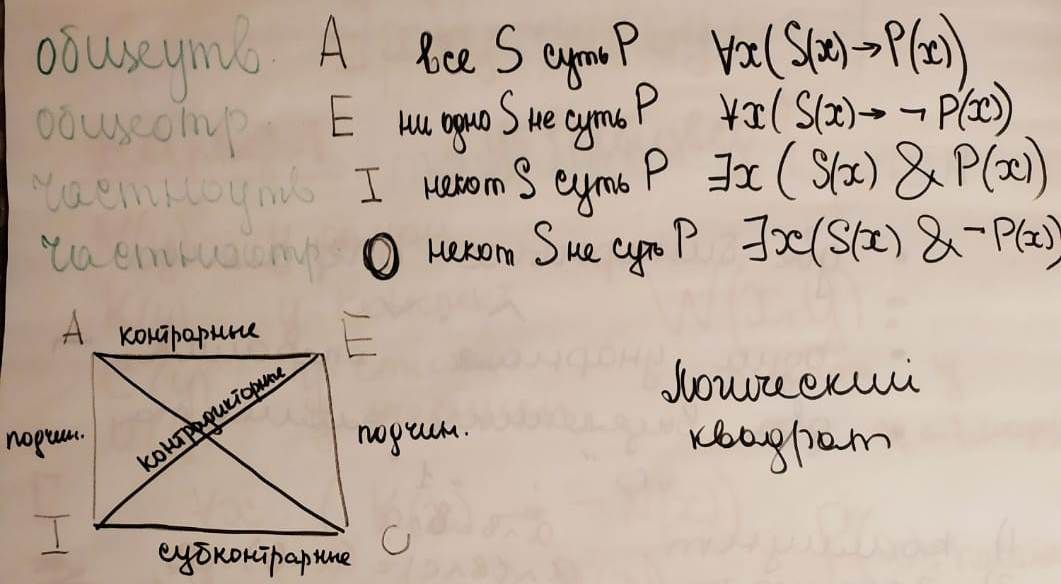 общеутв. A все S суть P ∀x(S(x)→P(x))
общеотр. E ни одно S не суть P ∀x(S(x)→¬P(x))
частноутв I некот S суть P ∃x(S(x) & P(x))
частноотр. O некот S не суть P ∃x(S(x) & ¬P(x))
A контрарные E
контрадикторные
подчин. подчин.
I субконтрарные O
Логический
квадрат